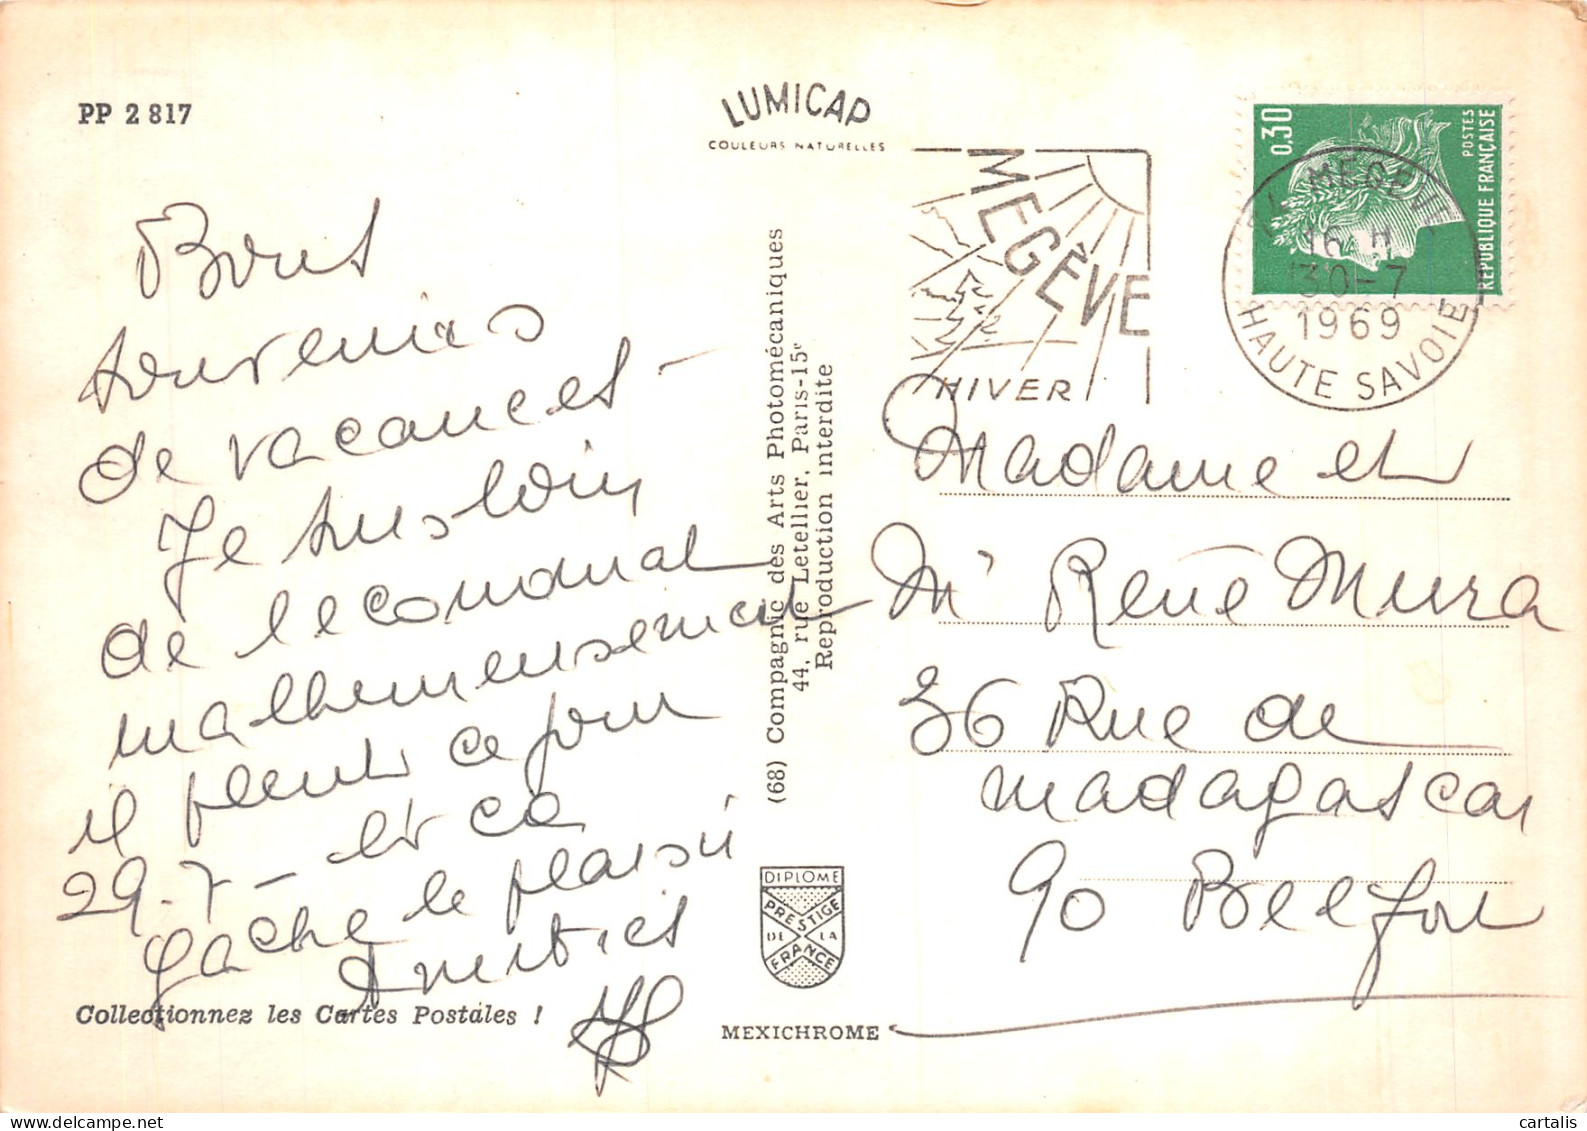 PP 2 817
LUMICAP
COULEURS NATURELLES
Bons
souvenirs
de vacances -
Je suis loin
de
malheureusement
il pleut ce jour
29-7 - et ca
gache le plaisir
Amitiés
Collectionnez les Cartes Postales !
(68) Compagnie des Arts Photomécaniques
44, rue Letellier, Paris-15e
Reproduction interdite
DIPLOME
PRESTIGE
DE LA
FRANCE
MEXICHROME
MEGÈVE
HIVER
0,30
POSTES
REPUBLIQUE FRANÇAISE
MEGEVE
16 H
30-7
1969
HAUTE SAVOIE
Madame et
Mr René Mura
36 Rue de
Madagascar
90 Belfort
cartalis
www.delcampe.net